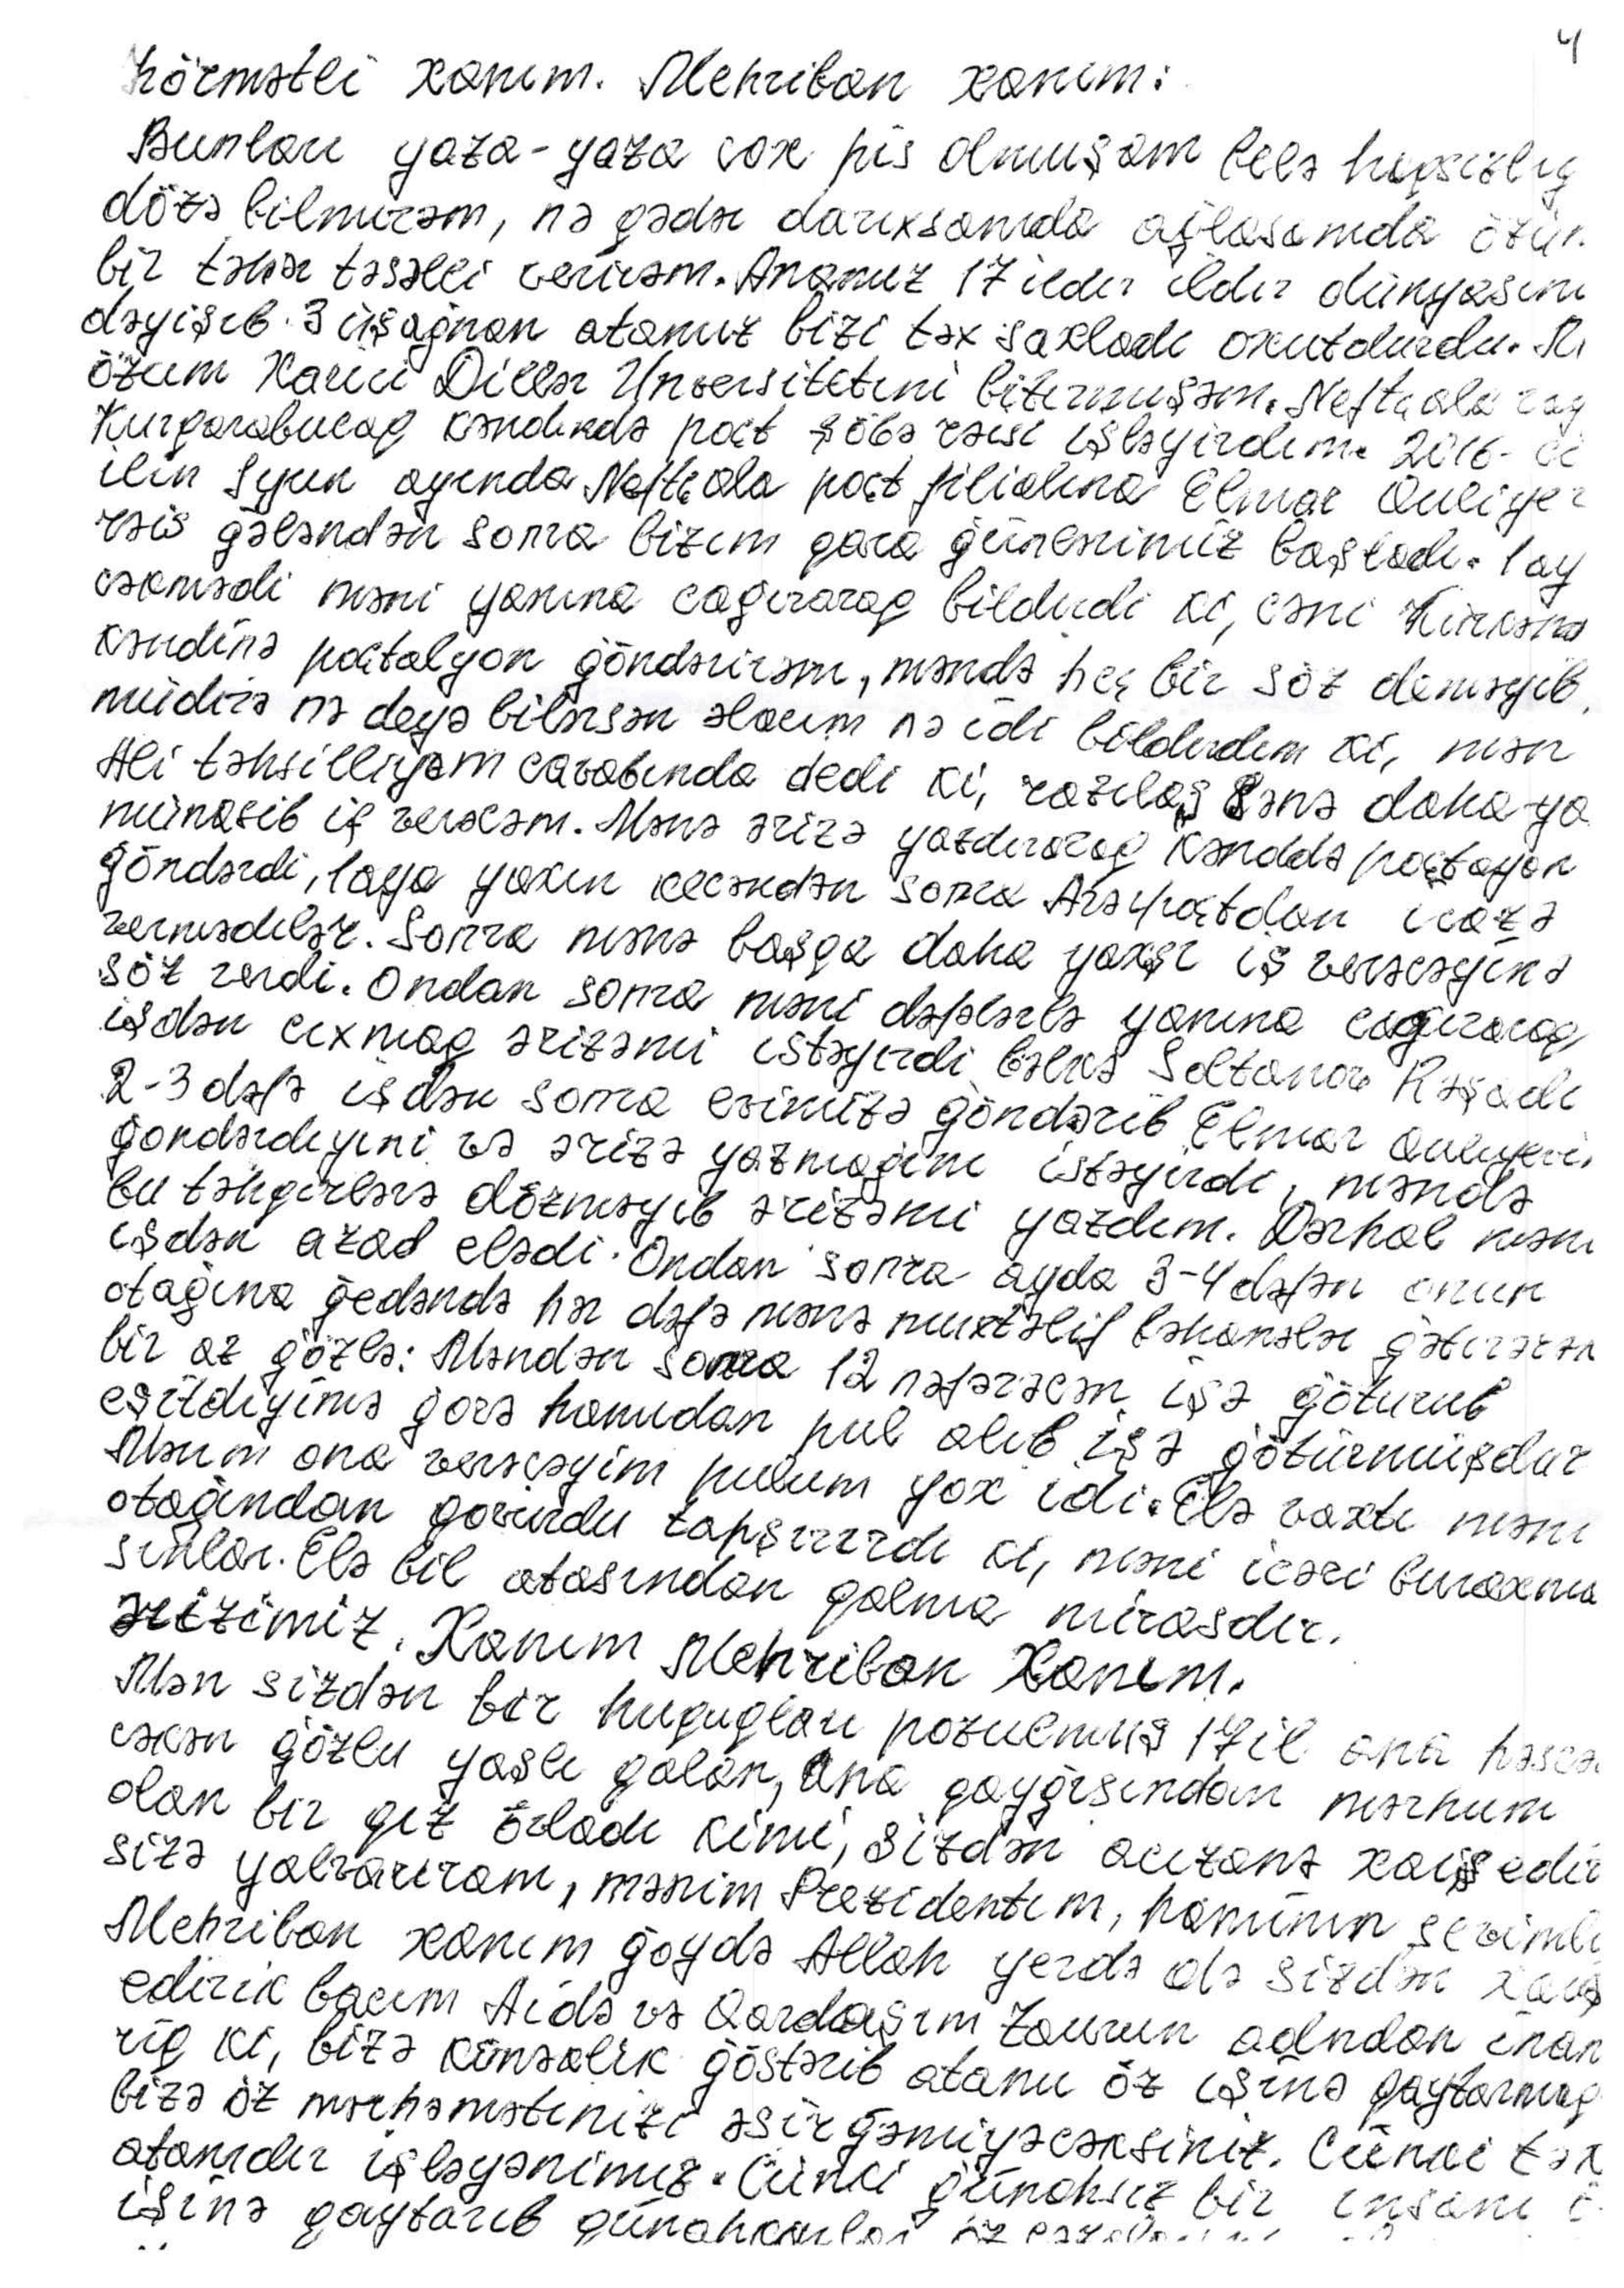 4
hörmətli xanım. Mehriban xanım:
Bunları yaza-yaza çox pis olmuşam belə
dözə bilmirəm, nə qədər darıxsamda ağlasamda özün
bir təhər təsəlli verirəm. Anamız 17 ildir ildir dünyasını
dəyişib. 3 uşağnan atamız bizi təx saxladı oxutdurdu. M
özüm Xarici Dillər Unversitetini bitirmişəm. Neftçala ray
Kurqarabucag kəndində poçt şöbə rəisi işləyirdim. 2016-ci
ilin iyun ayında Neftçala poçt filialına Elmar Quliye
rəis gələndən sonra bizim qara günlərimiz başladı. 1 ay
cəkmədi məni yanına cağıraraq bildirdi ki, səni
kəndinə poçtalyon göndərirəm, məndə heç bir söz deməyib,
müdirə nə deyə bilərsən əlacım nə idi bildirdim ki, mən
Ali təhsilliyəm cavabında dedi ki, razılaş sənə daha ya
münasib iş verəcəm. Mənə ərizə yazdıraraq kənddə poçtayon
göndərdi, 1 aya yaxın kecəndən sonra Azərpoçtdan icazə
vermədilər. Sonra mənə başqa daha yaxşı iş verəcəyinə
söz verdi. Ondan sonra məni dəfələrlə yanına cağıraraq
işdən cıxmag ərizəmi istəyirdi bəlkə Soltanov Rəşadı
2-3 dəfə işdən sonra evimizə göndərib Elmar Quliyevin
göndərdiyini və ərizə yazmağımı istəyirdi, məndə
bu təhqirlərə dözməyib ərizəmi yazdım. Dərhal məni
işdən azad elədi. Ondan sonra ayda 3-4 dəfən onun
otağına gedəndə hər dəfə mənə muxtəlif bəhanələr gətirərən
bir az gözlə: Məndən sonra 12 nəfərəcən işə götürüb
eşitdiyimə görə hamıdan pul alıb işə götürmüşdür
Mənim ona verəcəyim pulum yox idi. Elə vaxtı məni
otağından qovurdu tapşırırdı ki, məni icəri buraxma
sınlar. Elə bil atasından qalma mirasdır.
Əzizimiz. Xanım Mehriban Xanım.
Mən sizdən bir huquqları pozulmuş 17 il ana həsrə
cəkən gözlü yaşlı qalan, Ana qayğısından mərhum
olan bir qız övladı kimi, sizdən acizanə xaiş edir
sizə yalvarıram, mənim Prezidentim, hamının sevimli
Mehriban xanım göydə Allah yerdə də sizdən xaiş
edirik bacım Aidə və Qardaşım Zaurun adından inan
rıq ki, bizə köməklik göstərib atamı öz işinə qaytarmag
bizə öz mərhəmətinizi əsirgəmiyəcəksiniz. Cünki tək
atamdır işləyənimiz. Cünki günahsız bir insanı ö
işinə qaytarıb günahkarları öz